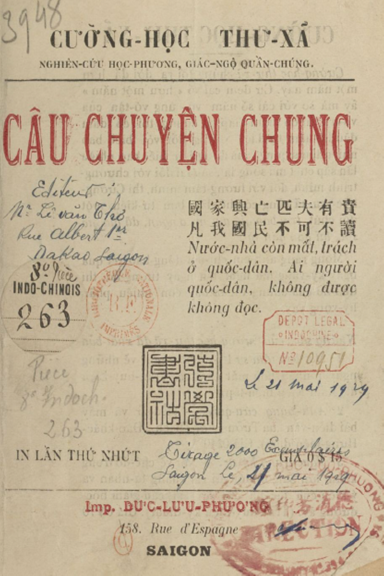 3948
CƯỜNG-HỌC THƯ-XÃ
NGHIÊN-CỨU HỌC-PHƯƠNG, GIÁC-NGỘ QUẦN-CHÚNG.
CÂU CHUYỆN CHUNG
Editeur
Mr Lê văn Thơ
Rue Albert 1er
Dakao Saigon
國家興亡匹夫有責
凡我國民不可不讀
Nước-nhà còn mất, trách
ở quốc-dân. Ai người
quốc-dân, không được
không đọc.
8o Pièce
INDO-CHINOIS
263
DEPOT LEGAL
INDOCHINE
No 10951
Le 21 mai 1929
Pièce
8o Indoch.
263
IN LẦN THỨ NHỨT
Tirage 2000 Exemplaires
GIÁ 0$15
Saigon le, 21 mai 1929
Imp. ĐỨC-LƯU-PHƯƠNG
158. Rue d'Espagne
DIRECTION
SAIGON